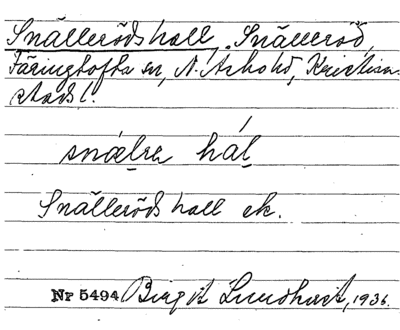 Snälleröds hall, Snälleröd,
Färingtofta sn, N. Åsbo hd, Kristian-
stads l.
snælrə hál
Snälleröds hall ek.
Nr 5494 Birgit Lundqvist, 1936.